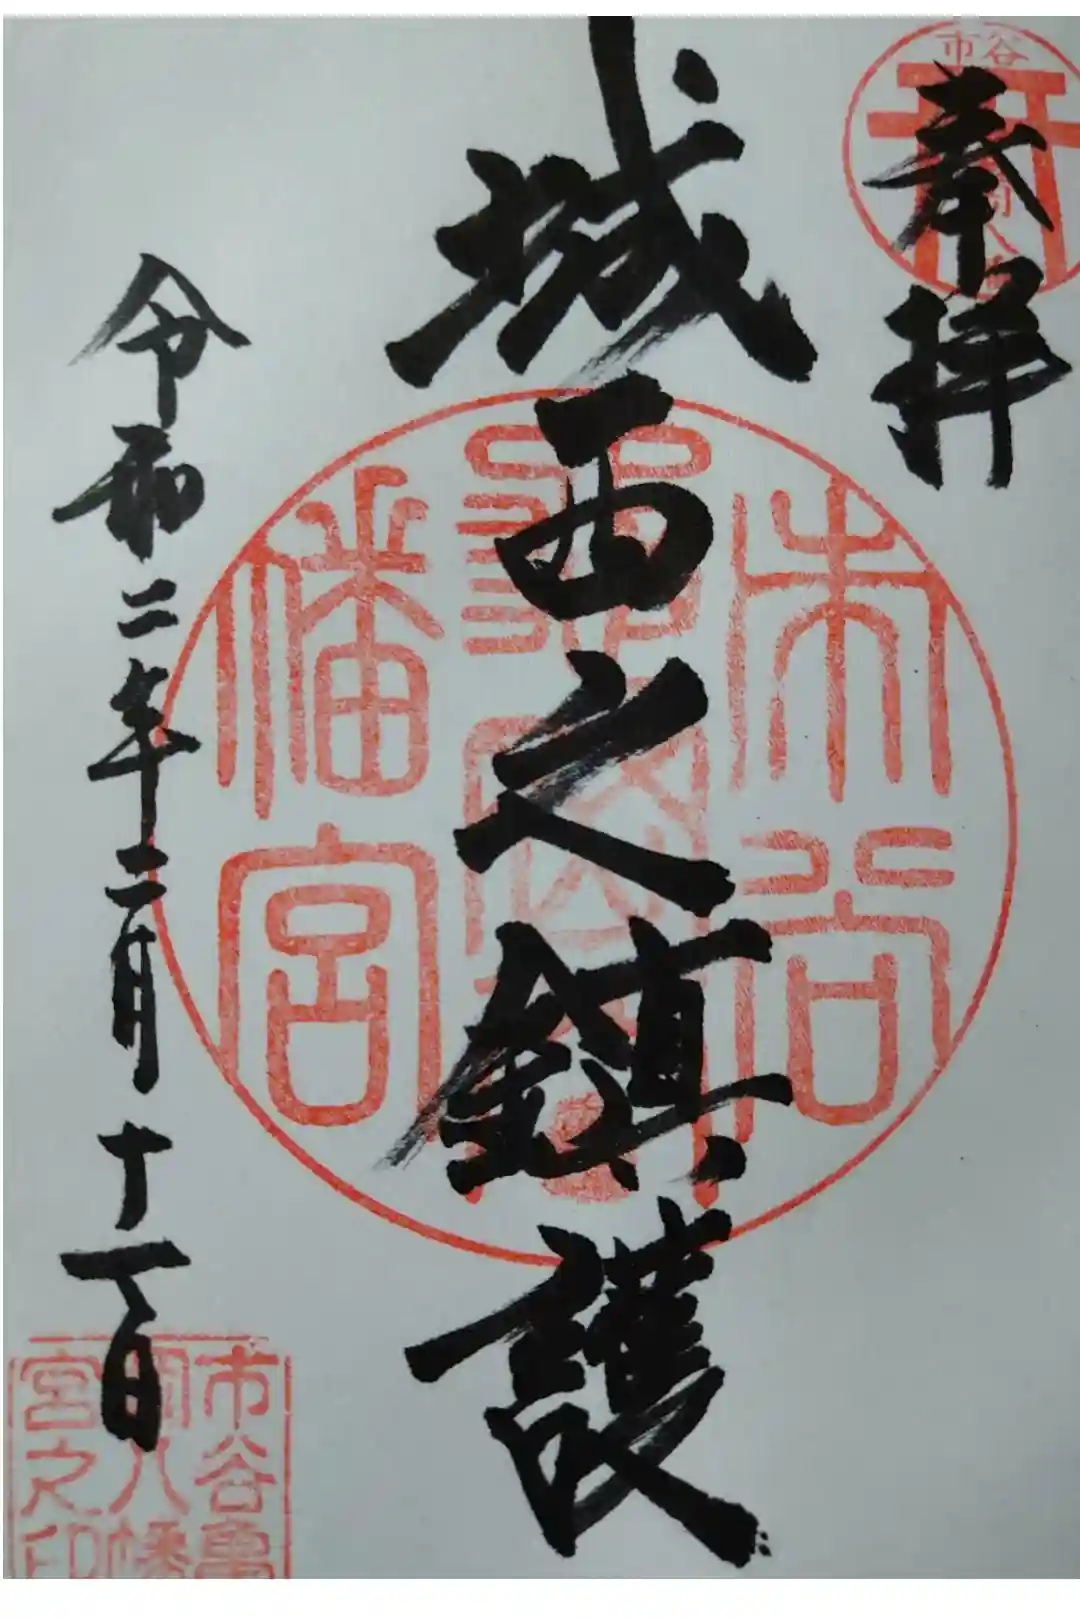 市谷
奉拝
城西之鎮護
市谷
幡宮
令和二年二月十一日
市谷亀
岡八幡
宮之印